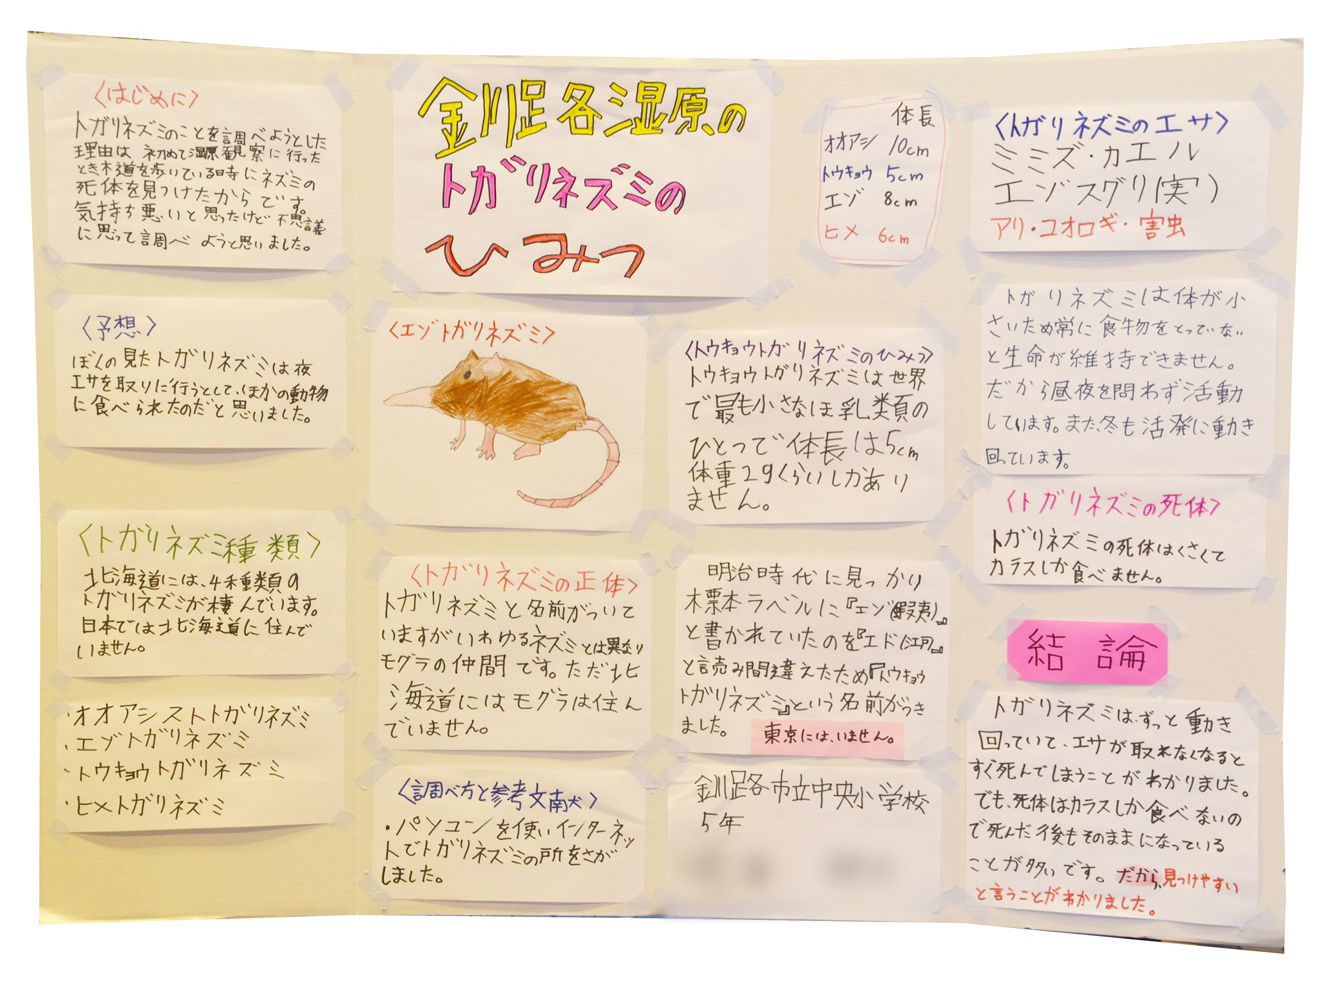 〈はじめに〉
トガリネズミのことを調べようとした
理由は、初めて湿原観察に行った
とき木道を歩いている時にネズミの
死体を見つけたからです。
気持ち悪いと思ったけど不思議
に思って調べようと思いました。
〈予想〉
ぼくの見たトガリネズミは夜
エサを取りに行うとして、ほかの動物
に食べられたのだと思いました。
〈トガリネズミ種類〉
北海道には、4種類の
トガリネズミが棲んでいます。
日本では北海道に住んで
いません。
・オオアシストトガリネズミ
・エゾトガリネズミ
・トウキョウトガリネズミ
・ヒメトガリネズミ
釧路湿原の
トガリネズミの
ひみつ
体長
オオアシ 10cm
トウキョウ 5cm
エゾ 8cm
ヒメ 6cm
〈エゾトガリネズミ〉
〈トウキョウトガリネズミのひみつ〉
トウキョウトガリネズミは世界
で最も小さなほ乳類の
ひとつで体長は5cm
体重2gくらいしかあり
ません。
〈トガリネズミの正体〉
トガリネズミと名前がついて
いますがいわゆるネズミとは異なり
モグラの仲間です。ただ北
海道にはモグラは住ん
でいません。
明治時代に見つかり
標本ラベルに『エゾ(蝦夷)』
と書かれていたのを『エド(江戸)』
と読み間違えたため『トウキョウ
トガリネズミ』という名前がつき
ました。
東京には、いません。
〈調べ方と参考文献〉
・パソコンを使いインターネッ
トでトガリネズミの所をさが
しました。
釧路市立中央小学校
5年
〈トガリネズミのエサ〉
ミミズ・カエル
エゾスグリ(実)
アリ・コオロギ・害虫
トガリネズミは体が小
さいため常に食物をとっていない
と生命が維持できません。
だから昼夜を問わず活動
しています。また、冬も活発に動き
回っています。
〈トガリネズミの死体〉
トガリネズミの死体はくさくて
カラスしか食べません。
結論
トガリネズミは、ずっと動き
回っていて、エサが取れなくなると
すぐ死んでしまうことがわかりました。
でも、死体はカラスしか食べないの
で死んだ後もそのままになっている
ことが多いです。だから、見つけやすい
と言うことがわかりました。